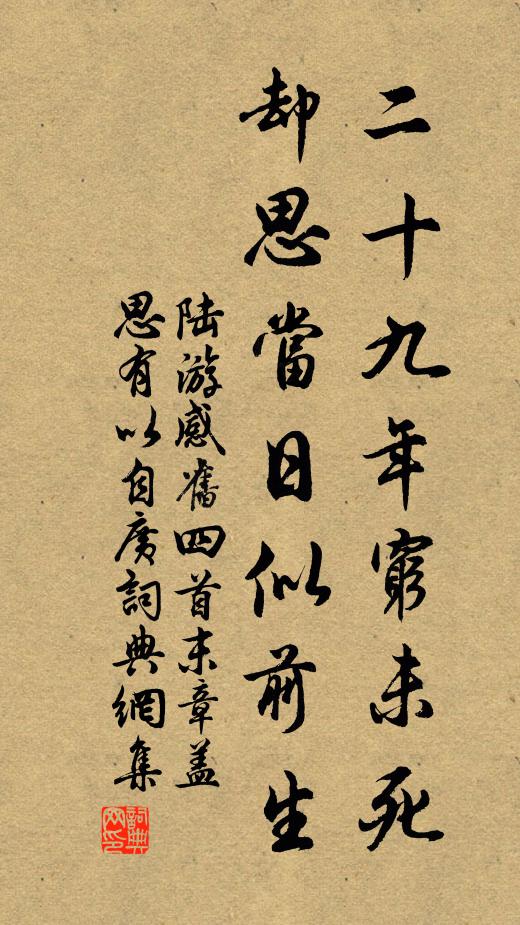 二十九年窮未死
却思當日似前生
陸游感舊四首末章盖
思有以自廣詞典網集
詞典网印